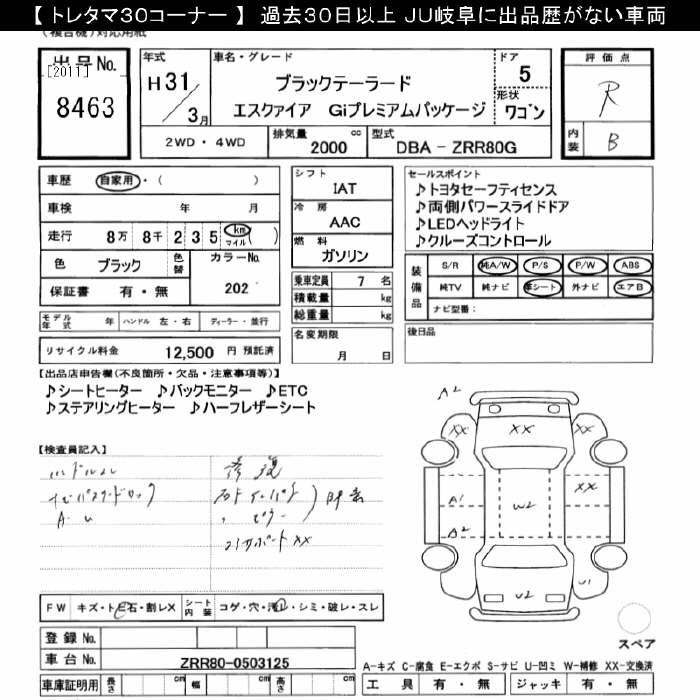 【 トレタマ30コーナー 】 過去30日以上 JU岐阜に出品歴がない車両
(複合機)対応用紙
出品No.
[2011]
8463
年式
H31/3月
車名・グレード
ブラックテーラード
エスクァイア Giプレミアムパッケージ
ドア
5
形状
ワゴン
評価点
R
内装
B
2WD・4WD
排気量
2000 cc
型式
DBA - ZRR80G
車歴 自家用・( )
車検 年 月
走行 8万 8千 2 3 5 km マイル ( )
色 ブラック 色替 カラーNo.
保証書 有・無 202
シフト
IAT
冷房
AAC
燃料
ガソリン
乗車定員 7 名
積載量 kg
総重量 kg
セールスポイント
♪トヨタセーフティセンス
♪両側パワースライドドア
♪LEDヘッドライト
♪クルーズコントロール
装備品
S/R 純A/W P/S P/W ABS
純TV 純ナビ 革シート 外ナビ エアB
ナビ型番:
モデル年式 年 ハンドル 左・右 ディーラー・並行
名変期限
月 日
後日品
リサイクル料金 12,500 円 預託済
【出品店申告欄(不良箇所・欠品・注意事項等)】
♪シートヒーター ♪バックモニター ♪ETC
♪ステアリングヒーター ♪ハーフレザーシート
【検査員記入】
修復
A2
XX XX XX
A1 XX
W2
A2
U2 U1
FW キズ・トビ石・割レX シート内装 コゲ・穴・汚レ・シミ・破レ・スレ
登録No.
車台No. ZRR80-0503125
スペア
A-キズ C-腐食 E-エクボ S-サビ U-凹ミ W-補修 XX-交換済
車庫証明用 長さ cm 幅 cm 高さ cm
工具 有・無 ジャッキ 有・無